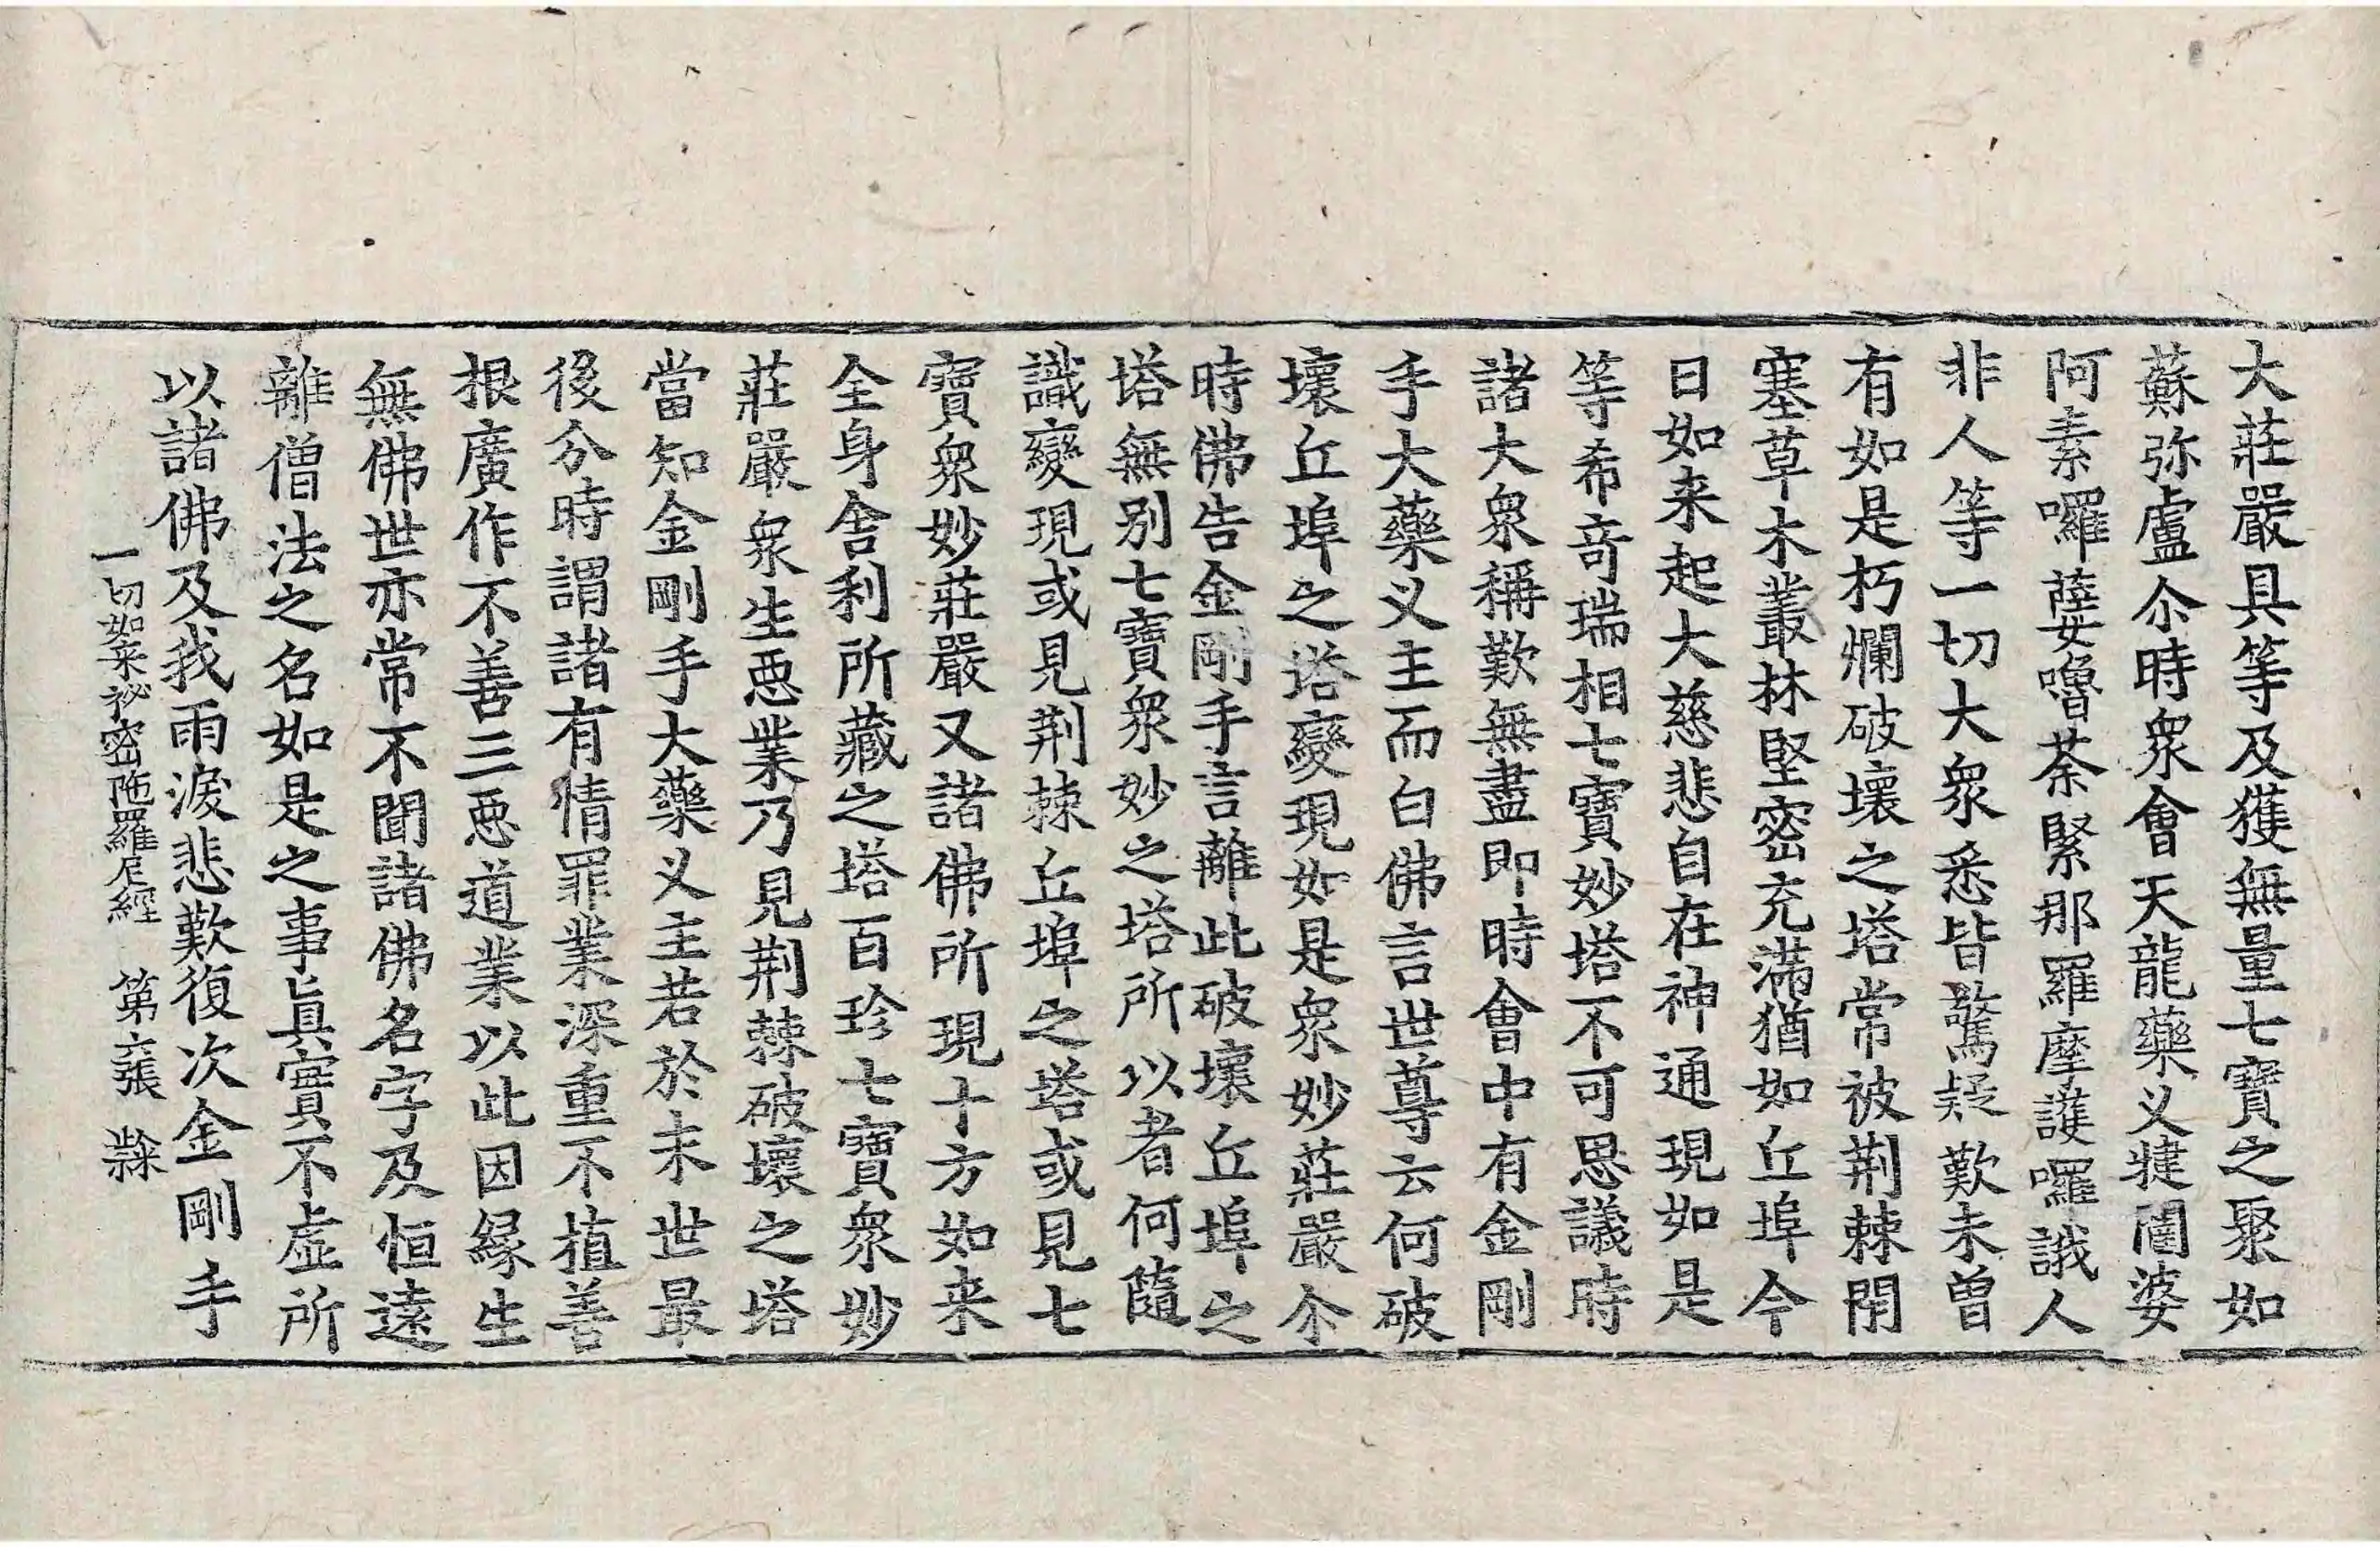 大莊嚴具等及獲無量七寶之聚如
蘇弥盧尒時衆會天龍藥义揵闥婆
阿素囉薩嚕荼緊那羅摩護囉誐人
非人等一切大衆悉皆驚疑歎未曾
有如是朽爛破壞之塔常被荆棘閇
塞草木叢林堅密充滿猶如丘埠今
日如来起大慈悲自在神通現如是
等希竒瑞相七寶妙塔不可思議時
諸大衆稱歎無盡即時會中有金剛
手大藥义主而白佛言世尊云何破
壞丘埠之塔變現如是衆妙莊嚴尒
時佛告金剛手言離此破壞丘埠之
塔無别七寶衆妙之塔所以者何隨
識變現或見荆棘丘埠之塔或見七
寶衆妙莊嚴又諸佛所現十方如来
全身舍利所藏之塔百珍七寶衆妙
莊嚴衆生悪業乃見荆棘破壞之塔
當知金剛手大藥义主若於末世最
後分時謂諸有情罪業深重不植善
根廣作不善三悪道業以此因緣生
無佛世亦常不聞諸佛名字及恒遠
離僧法之名如是之事眞實不虛所
以諸佛及我雨淚悲歎復次金剛手
一切如来祕密陁羅尼經　第六張